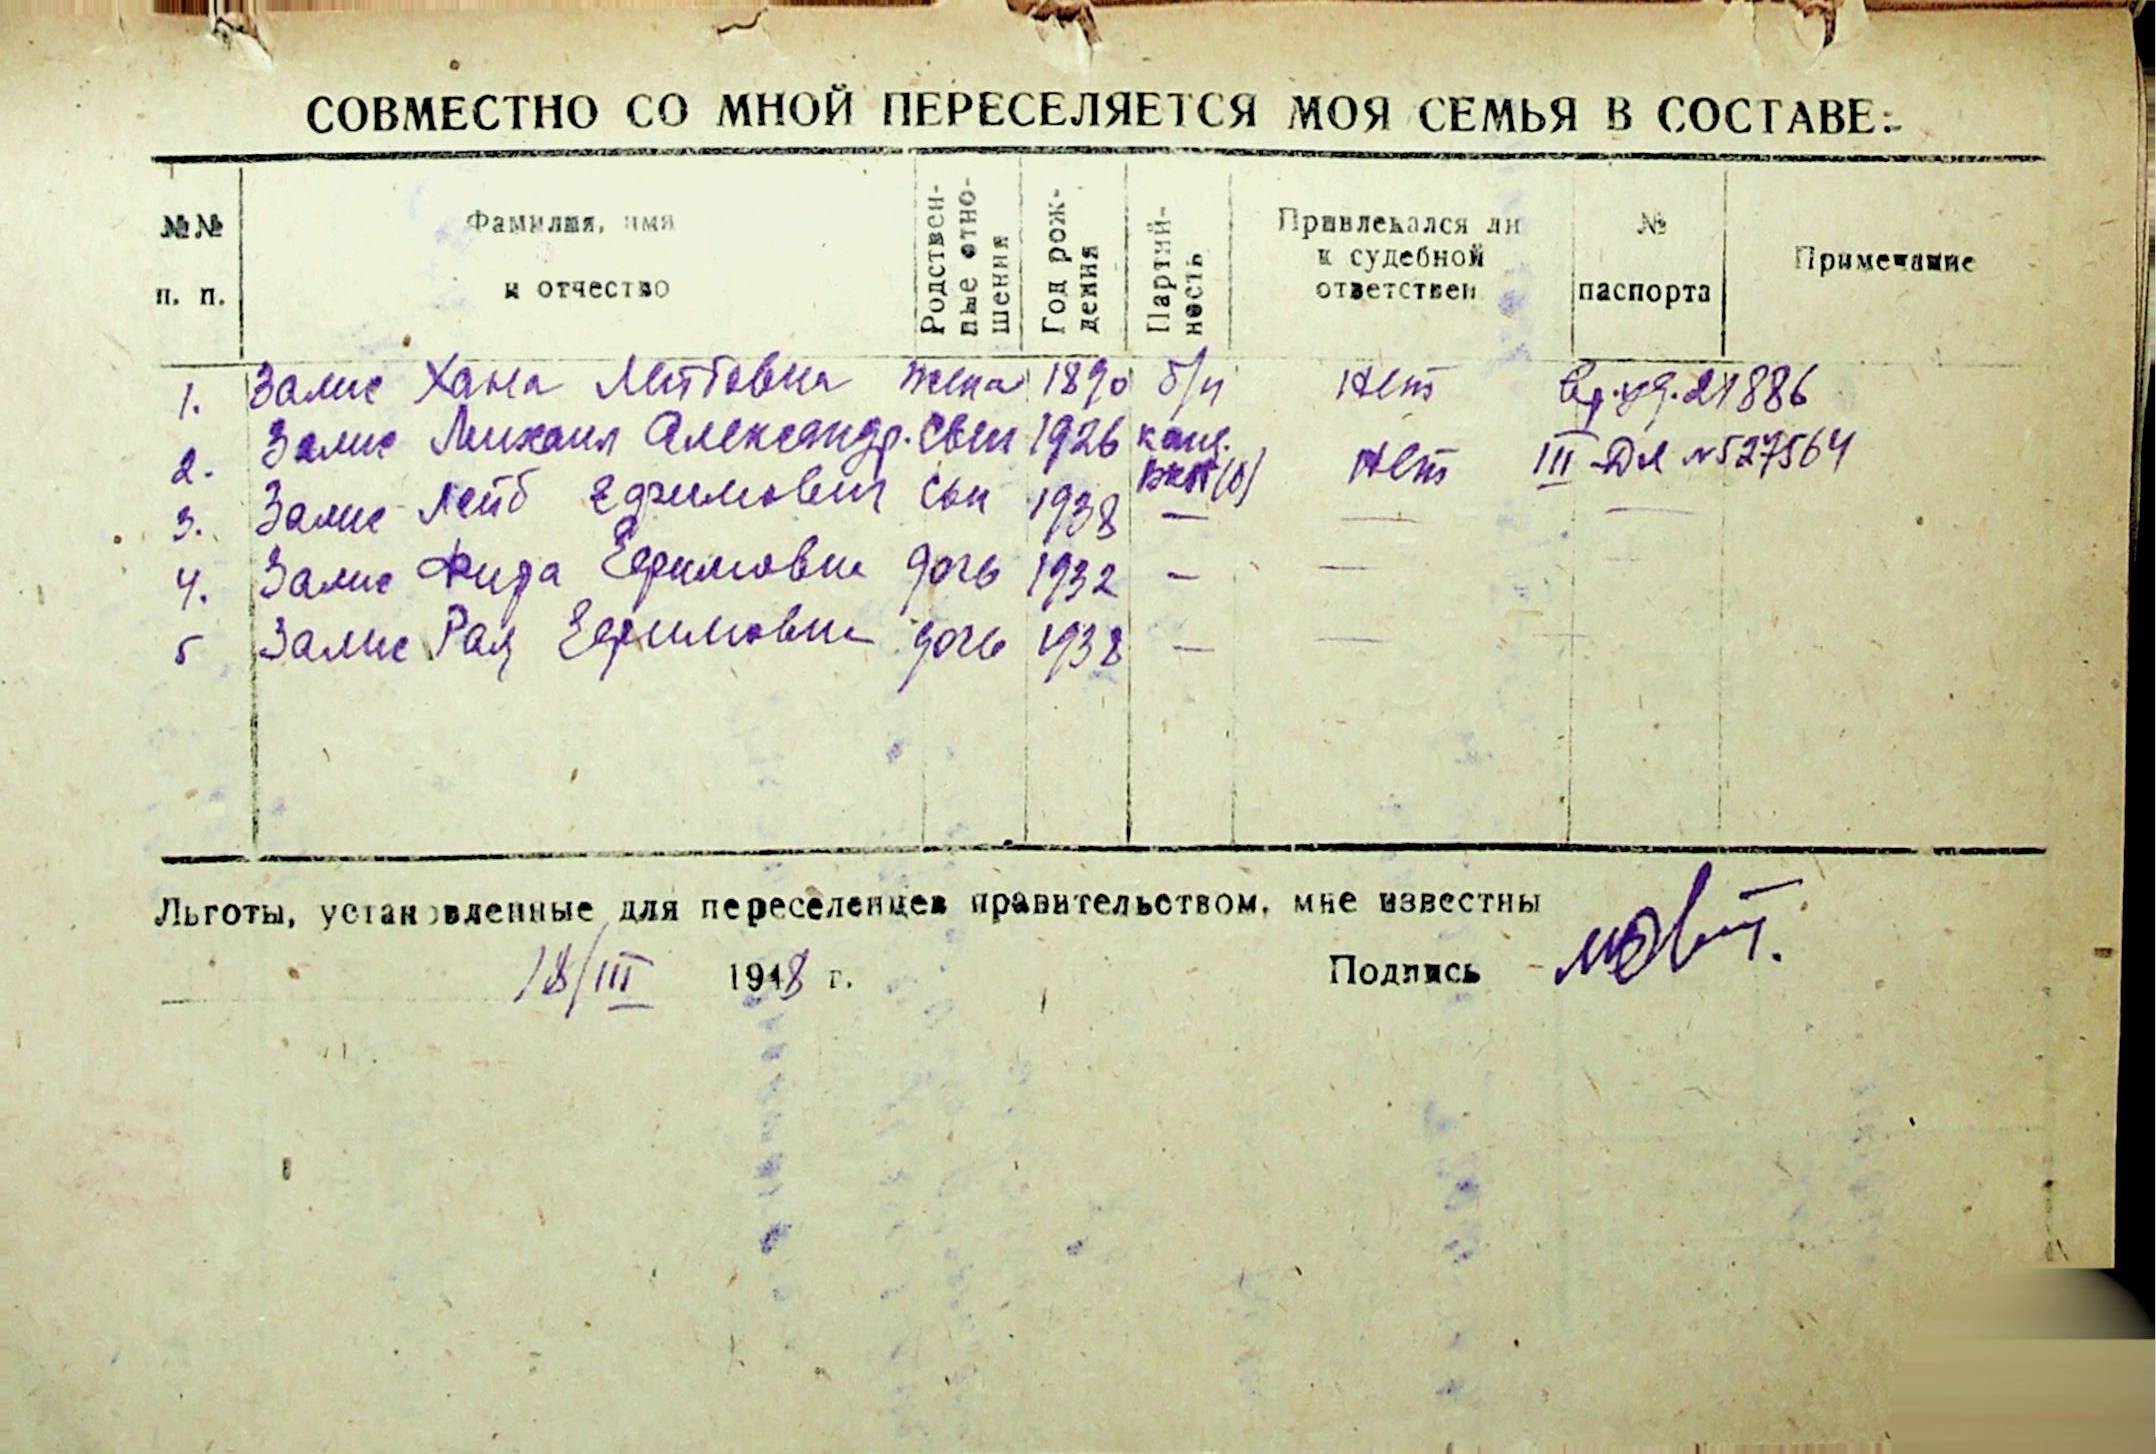 СОВМЕСТНО СО МНОЙ ПЕРЕСЕЛЯЕТСЯ МОЯ СЕМЬЯ В СОСТАВЕ:
№№ п. п. Фамилия, имя и отчество Родствен-ные отно-шения Год рож-дения Партий-ность Привлекался ли к судебной ответствен № паспорта Примечание
1. Залис Хана Лейбовна жена 1890 б/п Нет Вр.уд. 21886
2. Залис Михаил Александр. сын 1926 канд. ВКП(б) Нет III-ДЛ №527564
3. Залис Лейб Ефимович сын 1938 — — —
4. Залис Фира Ефимовна дочь 1932 — —
5 Залис Рая Ефимовна дочь 1938 — —
Льготы, установленные для переселенцев правительством, мне известны
18/III 1948 г. Подпись